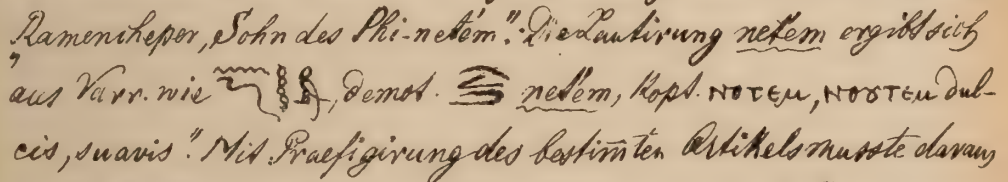 Ramencheper, Sohn des Phi-netem". Die Lautirung netem ergibt sich
aus Varr. wie , demot. netem, kopt. ⲛⲟⲧⲉⲙ, ⲛⲟⲩⲧⲉⲙ „dul-
cis, suavis". Mit Praefigirung des bestim̅ten Artikels musste daraus